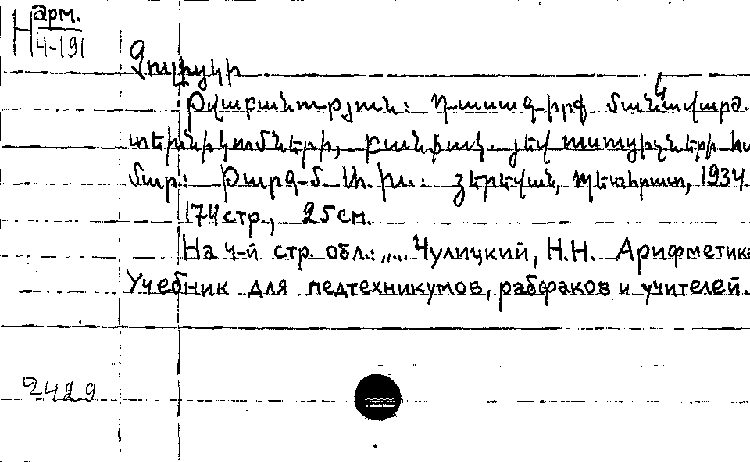 Н арм.
4-191
Չուլիցկի
Թվաբանություն: Դասագիրք մանկավարժ.
տեխնիկումների, բանֆակ. յեվ ուսուցիչների հա
մար: Թարգ. Յերեվան, Պետհրատ, 1934.
174 стр., 25 см.
На 4-й стр. обл.: "... Чулицкий, Н.Н. Арифметика
Учебник для педтехникумов, рабфаков и учителей.
2429